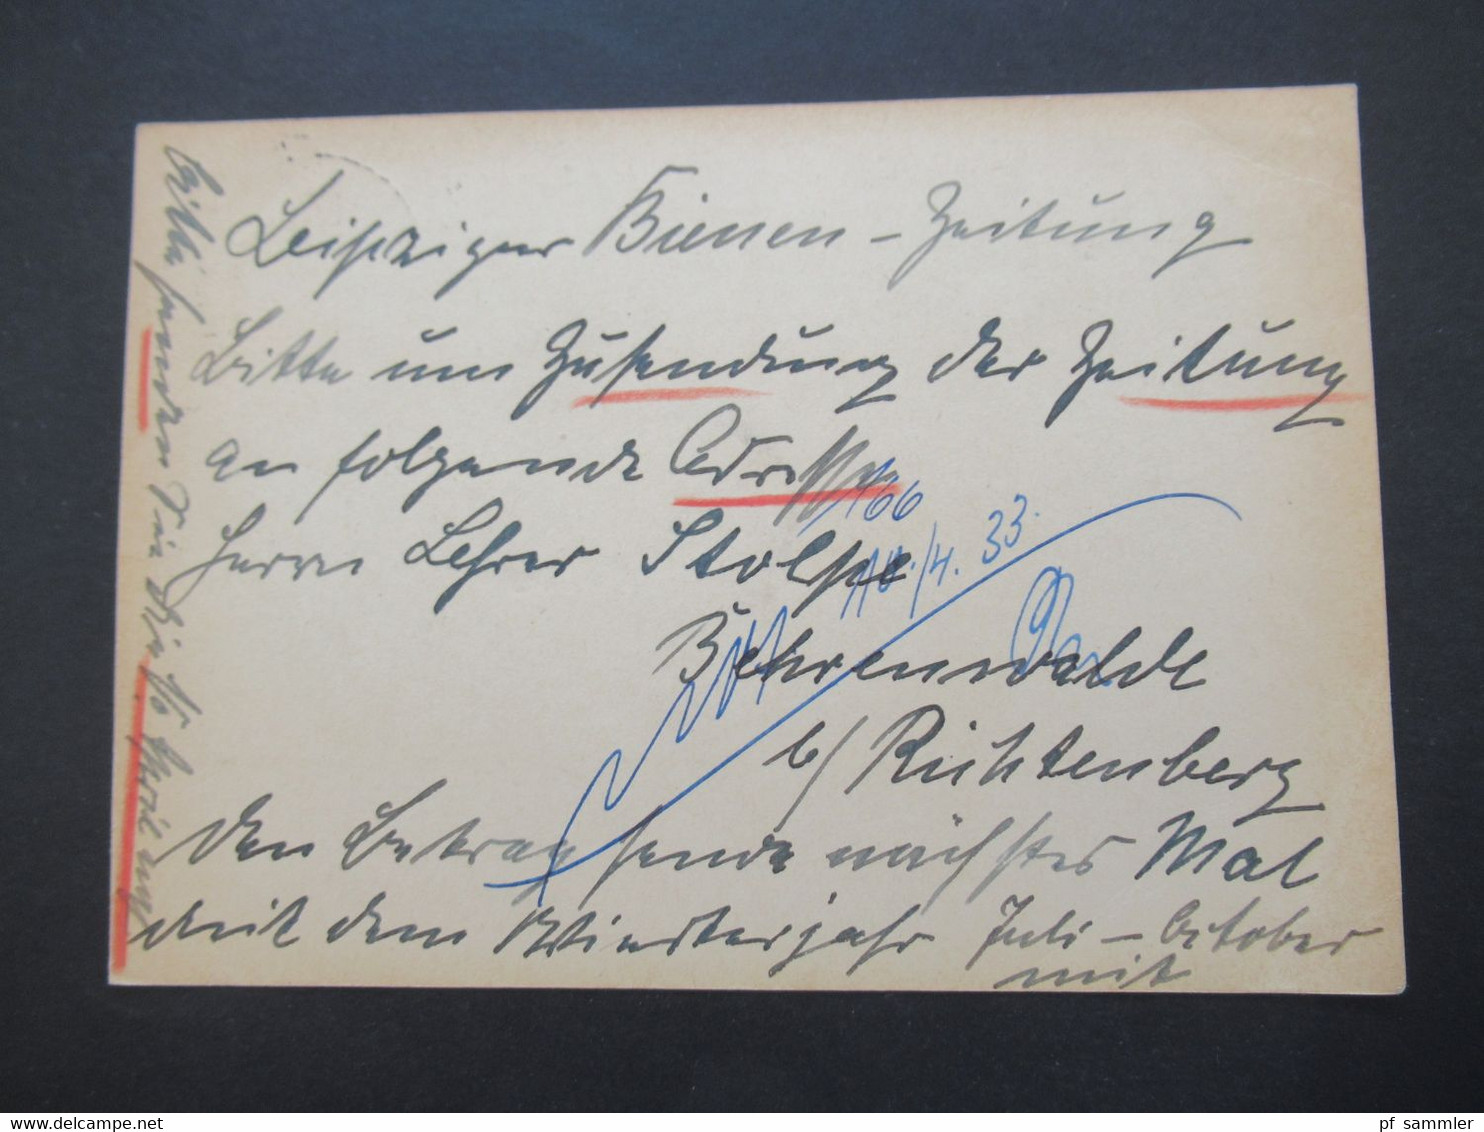 Leipziger Bienen-Zeitung
Bitte um Zusendung der Zeitung
an folgende Adresse
Herrn Lehrer Stolpe
Behrenwalde
b/ Richtenberg
den Betrag sende nächstes Mal
mit dem Vierteljahr Juli - October
mit
Bitte senden Sie die
166
/4. 33.
pf sammler